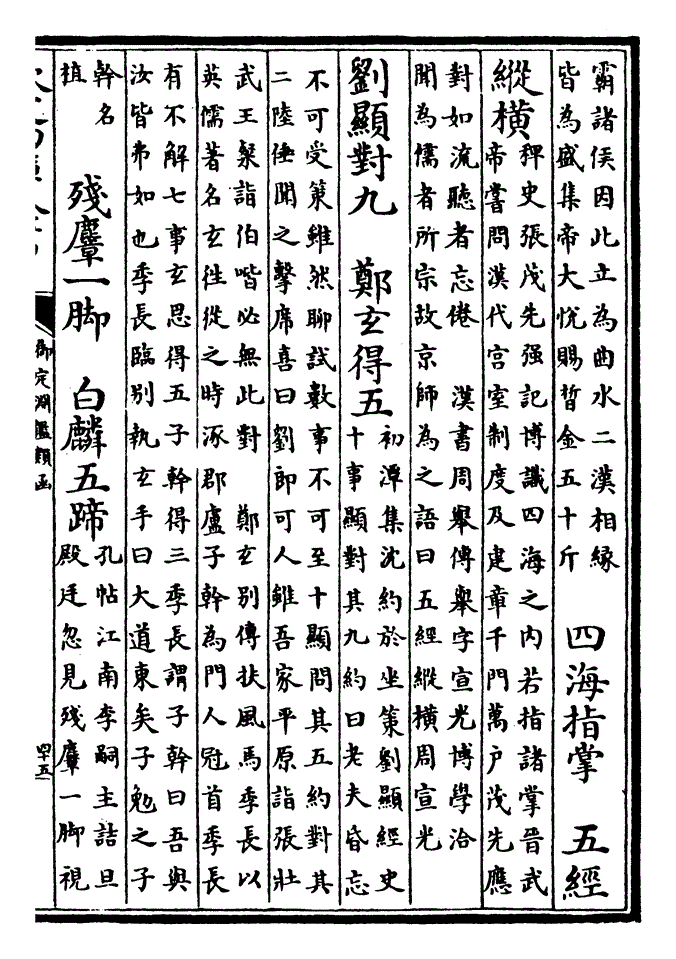 霸諸侯因此立為曲水二漢相緣
皆為盛集帝大悦賜晳金五十斤
四海指掌　五經
縱橫
稗史張茂先强記博識四海之内若指諸掌晉武
帝嘗問漢代宫室制度及建章千門萬户茂先應
對如流聽者忘倦　漢書周舉傳舉字宣光博學洽
聞為儒者所宗故京師為之語曰五經縱橫周宣光
劉顯對九　鄭玄得五
初潭集沈約於坐策劉顯經史
十事顯對其九約曰老夫昏忘
不可受策雖然聊試數事不可至十顯問其五約對其
二陸倕聞之擊席喜曰劉郎可人雖吾家平原詣張壯
武王粲詣伯喈必無此對　鄭玄别傳扶風馬季長以
英儒著名玄往從之時涿郡盧子幹為門人冠首季長
有不解七事玄思得五子幹得三季長謂子幹曰吾與
汝皆弗如也季長臨别執玄手曰大道東矣子勉之子
幹名
植
殘麞一脚　白麟五蹄
孔帖江南李嗣主詰旦
殿廷忽見殘麞一脚視
御定淵鑑類函
四十五